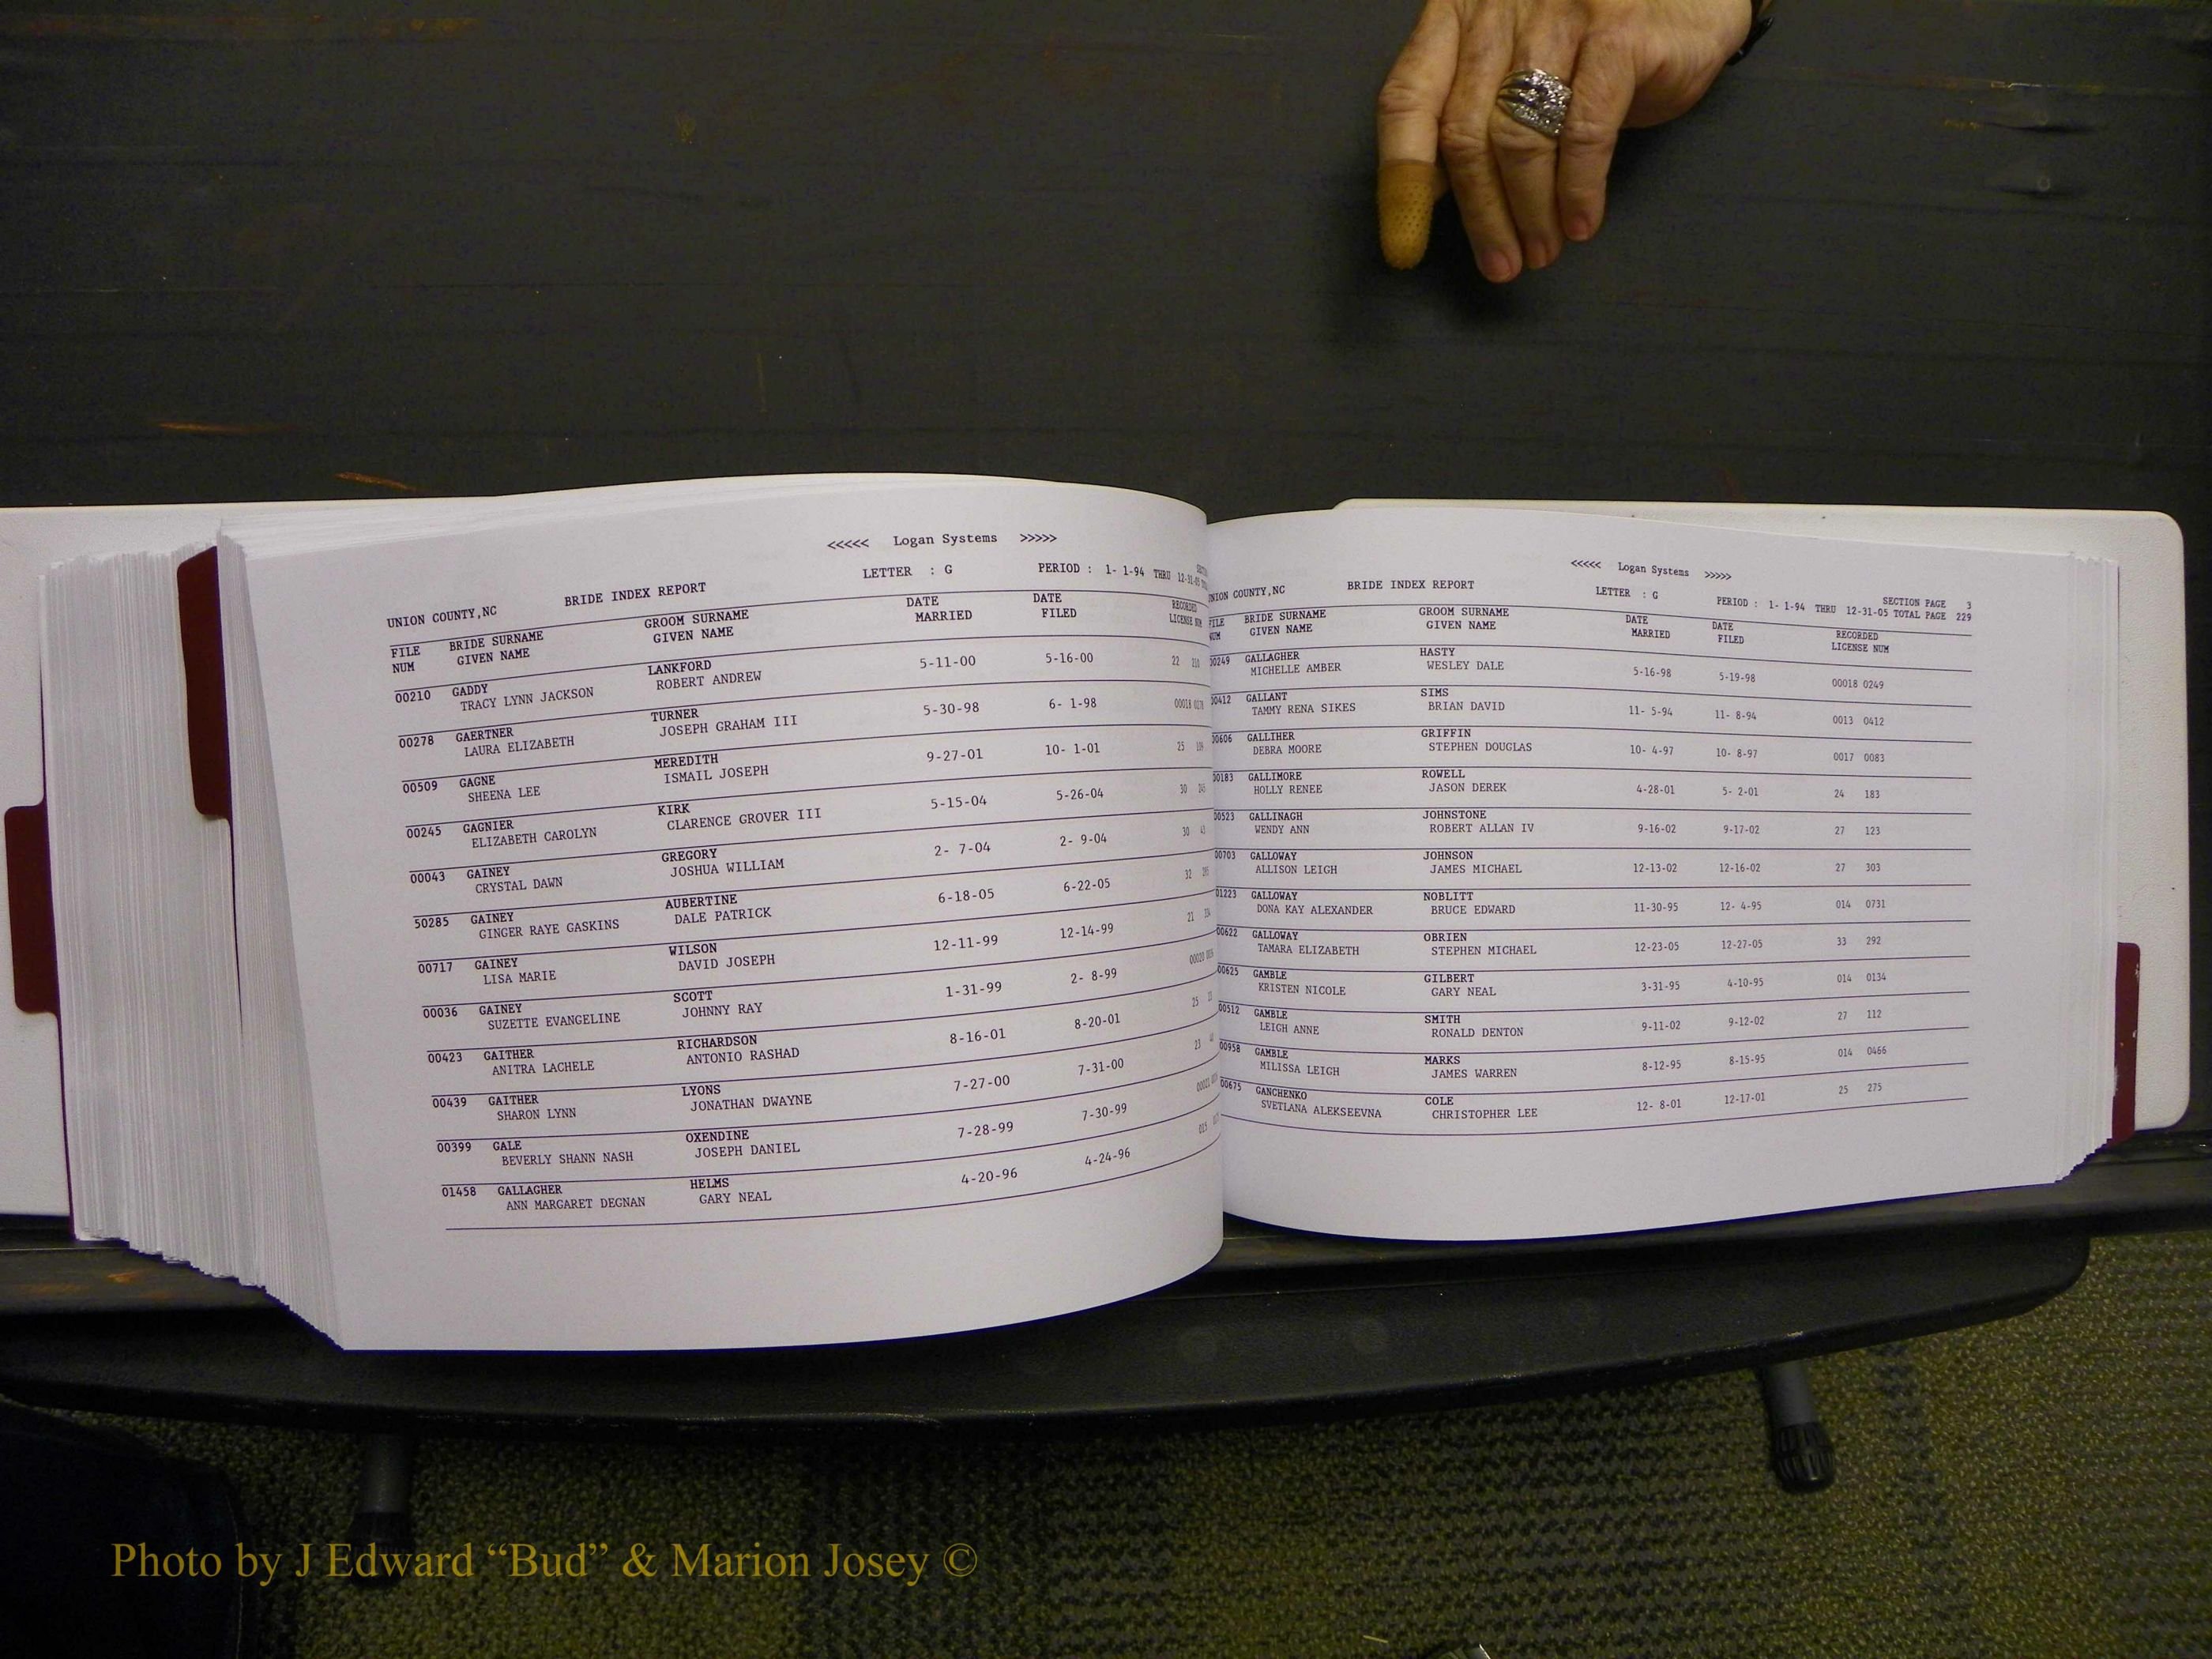 <<<<< Logan Systems >>>>>
UNION COUNTY,NC BRIDE INDEX REPORT LETTER : G PERIOD : 1- 1-94 THRU
FILE BRIDE SURNAME GROOM SURNAME DATE DATE RECORDED
NUM GIVEN NAME GIVEN NAME MARRIED FILED LICENSE NUM
00210 GADDY LANKFORD 5-11-00 5-16-00 22
TRACY LYNN JACKSON ROBERT ANDREW
00278 GAERTNER TURNER 5-30-98 6- 1-98 00018
LAURA ELIZABETH JOSEPH GRAHAM III
00509 GAGNE MEREDITH 9-27-01 10- 1-01 25
SHEENA LEE ISMAIL JOSEPH
00245 GAGNIER KIRK 5-15-04 5-26-04 30
ELIZABETH CAROLYN CLARENCE GROVER III
00043 GAINEY GREGORY 2- 7-04 2- 9-04 30
CRYSTAL DAWN JOSHUA WILLIAM
50285 GAINEY AUBERTINE 6-18-05 6-22-05 32
GINGER RAYE GASKINS DALE PATRICK
00717 GAINEY WILSON 12-11-99 12-14-99 21
LISA MARIE DAVID JOSEPH
00036 GAINEY SCOTT 1-31-99 2- 8-99
SUZETTE EVANGELINE JOHNNY RAY
00423 GAITHER RICHARDSON 8-16-01 8-20-01 25
ANITRA LACHELE ANTONIO RASHAD
00439 GAITHER LYONS 7-27-00 7-31-00 23
SHARON LYNN JONATHAN DWAYNE
00399 GALE OXENDINE 7-28-99 7-30-99
BEVERLY SHANN NASH JOSEPH DANIEL
01458 GALLAGHER HELMS 4-20-96 4-24-96 015
ANN MARGARET DEGNAN GARY NEAL
<<<<< Logan Systems >>>>>
UNION COUNTY,NC BRIDE INDEX REPORT LETTER : G SECTION PAGE 3
PERIOD : 1- 1-94 THRU 12-31-05 TOTAL PAGE 229
FILE BRIDE SURNAME GROOM SURNAME DATE DATE RECORDED
NUM GIVEN NAME GIVEN NAME MARRIED FILED LICENSE NUM
00249 GALLAGHER HASTY 5-16-98 5-19-98 00018 0249
MICHELLE AMBER WESLEY DALE
00412 GALLANT SIMS 11- 5-94 11- 8-94 0013 0412
TAMMY RENA SIKES BRIAN DAVID
00606 GALLIHER GRIFFIN 10- 4-97 10- 8-97 0017 0083
DEBRA MOORE STEPHEN DOUGLAS
00183 GALLIMORE ROWELL 4-28-01 5- 2-01 24 183
HOLLY RENEE JASON DEREK
00523 GALLINAGH JOHNSTONE 9-16-02 9-17-02 27 123
WENDY ANN ROBERT ALLAN IV
00703 GALLOWAY JOHNSON 12-13-02 12-16-02 27 303
ALLISON LEIGH JAMES MICHAEL
01223 GALLOWAY NOBLITT 11-30-95 12- 4-95 014 0731
DONA KAY ALEXANDER BRUCE EDWARD
00622 GALLOWAY OBRIEN 12-23-05 12-27-05 33 292
TAMARA ELIZABETH STEPHEN MICHAEL
00625 GAMBLE GILBERT 3-31-95 4-10-95 014 0134
KRISTEN NICOLE GARY NEAL
00512 GAMBLE SMITH 9-11-02 9-12-02 27 112
LEIGH ANNE RONALD DENTON
00958 GAMBLE MARKS 8-12-95 8-15-95 014 0466
MILISSA LEIGH JAMES WARREN
00675 GANCHENKO COLE 12- 8-01 12-17-01 25 275
SVETLANA ALEKSEEVNA CHRISTOPHER LEE
Photo by J Edward “Bud” & Marion Josey ©